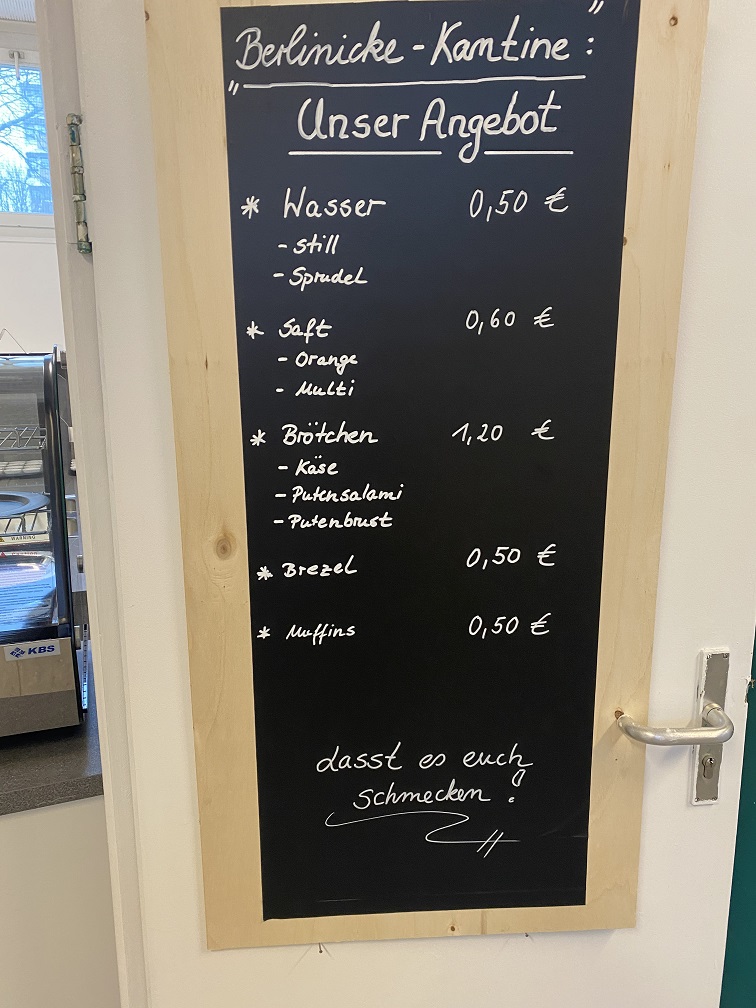 „Berlinicke - Kantine":
Unser Angebot
* Wasser 0,50 €
- still
- Sprudel
* Saft 0,60 €
- Orange
- Multi
* Brötchen 1,20 €
- Käse
- Putensalami
- Putenbrust
* Brezel 0,50 €
* Muffins 0,50 €
dasst es euch
schmecken!
KBS